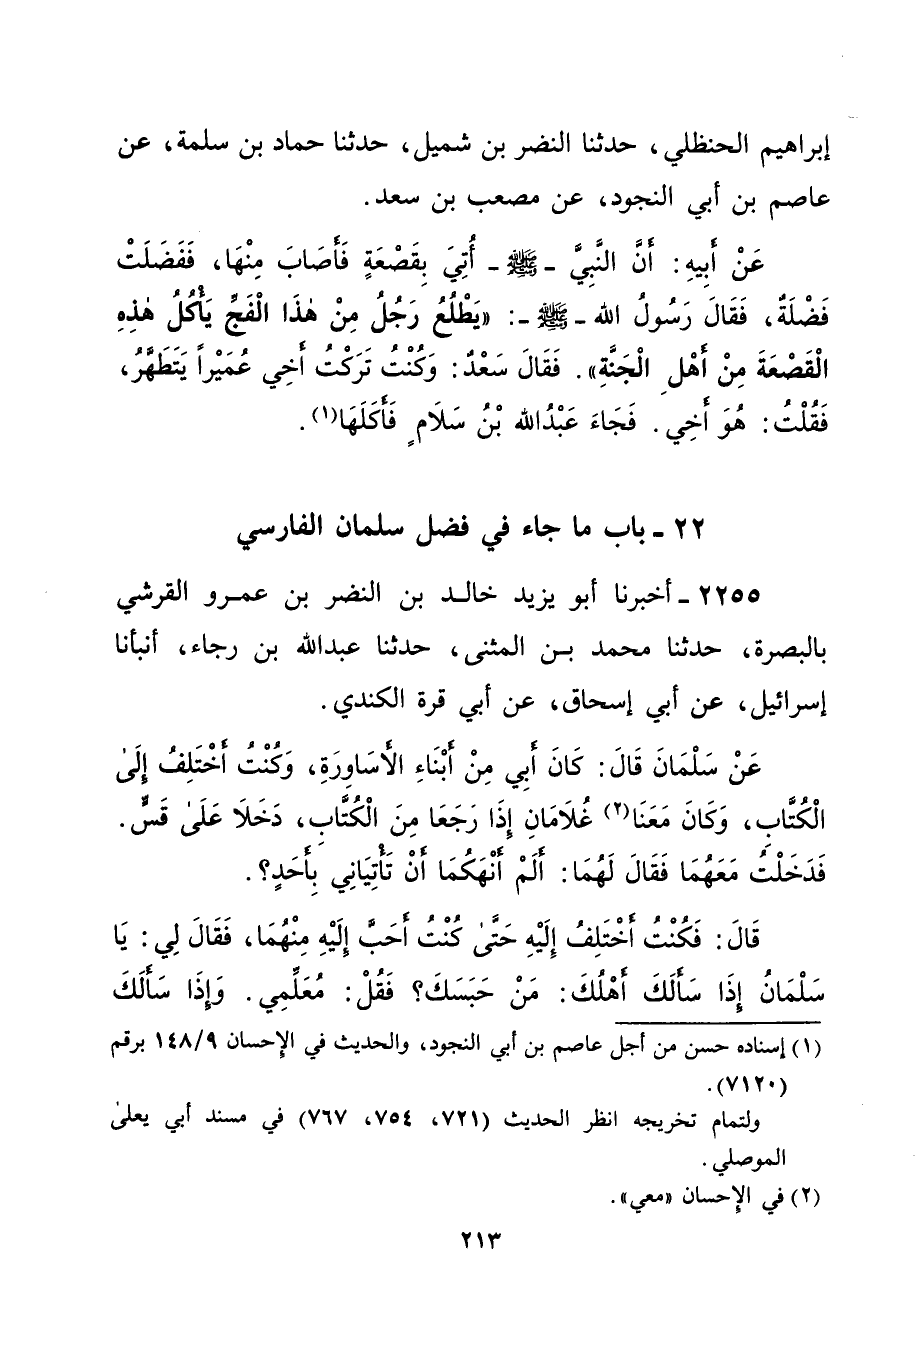 إبراهيم الحنظلي، حدثنا النضر بن شميل، حدثنا حماد بن سلمة، عن
عاصم بن أبي النجود، عن مصعب بن سعد.
عَنْ أَبِيهِ: أَنَّ النَّبِيَّ - ﷺ - أُتِيَ بِقَصْعَةٍ فَأَصَابَ مِنْهَا، فَفَضَلَتْ
فَضْلَةٌ، فَقَالَ رَسُولُ الله - ﷺ -: «يَطْلُعُ رَجُلٌ مِنْ هٰذَا الْفَجِّ يَأْكُلُ هٰذِهِ
الْقَصْعَةَ مِنْ أَهْلِ الْجَنَّةِ». فَقَالَ سَعْدٌ: وَكُنْتُ تَرَكْتُ أَخِي عُمَيْراً يَتَطَهَّرُ،
فَقُلْتُ: هُوَ أَخِي. فَجَاءَ عَبْدُالله بْنُ سَلَامٍ فَأَكَلَهَا(١).
٢٢ - باب ما جاء في فضل سلمان الفارسي
٢٢٥٥ - أخبرنا أبو يزيد خالد بن النضر بن عمرو القرشي
بالبصرة، حدثنا محمد بن المثنى، حدثنا عبدالله بن رجاء، أنبأنا
إسرائيل، عن أبي إسحاق، عن أبي قرة الكندي.
عَنْ سَلْمَانَ قَالَ: كَانَ أَبِي مِنْ أَبْنَاءِ الأَسَاوِرَةِ، وَكُنْتُ أَخْتَلِفُ إِلَىٰ
الْكُتَّابِ، وَكَانَ مَعَنَا(٢) غُلَامَانِ إِذَا رَجَعَا مِنَ الْكُتَّابِ، دَخَلَا عَلَىٰ قَسٍّ.
فَدَخَلْتُ مَعَهُمَا فَقَالَ لَهُمَا: أَلَمْ أَنْهَكُمَا أَنْ تَأْتِيَانِي بِأَحَدٍ؟.
قَالَ: فَكُنْتُ أَخْتَلِفُ إِلَيْهِ حَتَّىٰ كُنْتُ أَحَبَّ إِلَيْهِ مِنْهُمَا، فَقَالَ لِي: يَا
سَلْمَانُ إِذَا سَأَلَكَ أَهْلُكَ: مَنْ حَبَسَكَ؟ فَقُلْ: مُعَلِّمِي. وَإِذَا سَأَلَكَ
(١) إسناده حسن من أجل عاصم بن أبي النجود، والحديث في الإحسان ١٤٨/٩ برقم
(٧١٢٠).
ولتمام تخريجه انظر الحديث (٧٢١، ٧٥٤، ٧٦٧) في مسند أبي يعلىٰ
الموصلي.
(٢) في الإحسان «معي».
٢١٣